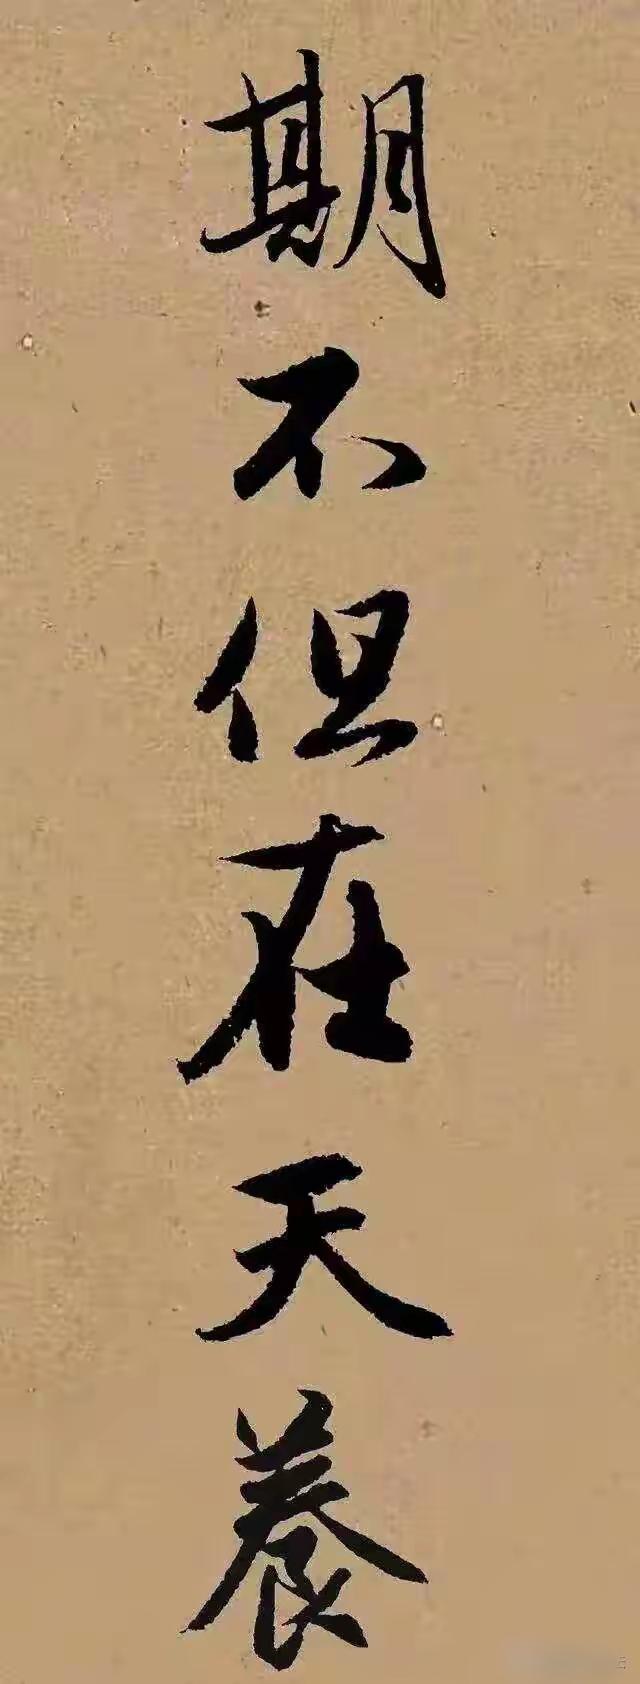 期不但在天養